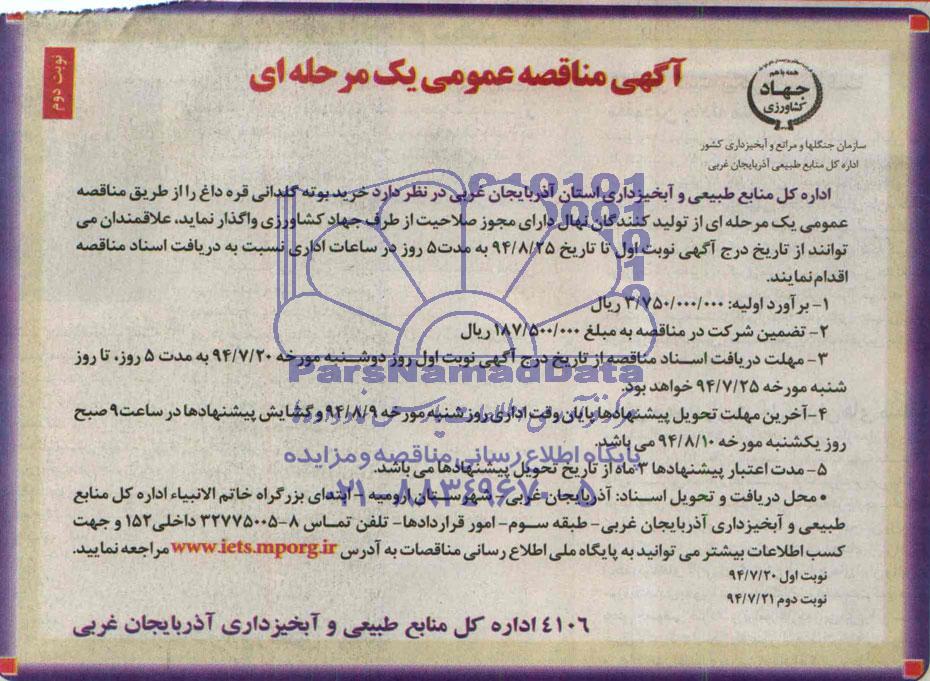 نوبت دوم
آگهی مناقصه عمومی یک مرحله ای
همه با هم
جهاد
کشاورزی
سازمان جنگلها و مراتع و آبخیزداری کشور
اداره کل منابع طبیعی آذربایجان غربی
اداره کل منابع طبیعی و آبخیزداری استان آذربایجان غربی در نظر دارد خرید بوته گلدانی قره داغ را از طریق مناقصه
عمومی یک مرحله ای از تولید کنندگان نهال دارای مجوز صلاحیت از طرف جهاد کشاورزی واگذار نماید، علاقمندان می
توانند از تاریخ درج آگهی نوبت اول تا تاریخ ۹۴/۸/۲۵ به مدت ۵ روز در ساعات اداری نسبت به دریافت اسناد مناقصه
اقدام نمایند.
۱- برآورد اولیه: ۳/۷۵۰/۰۰۰/۰۰۰ ریال
۲- تضمین شرکت در مناقصه به مبلغ ۱۸۷/۵۰۰/۰۰۰ ریال
۳- مهلت دریافت اسناد مناقصه از تاریخ درج آگهی نوبت اول روز دوشنبه مورخه ۹۴/۷/۲۰ به مدت ۵ روز، تا روز
شنبه مورخه ۹۴/۷/۲۵ خواهد بود.
۴- آخرین مهلت تحویل پیشنهادها پایان وقت اداری روز شنبه مورخه ۹۴/۸/۹ و گشایش پیشنهادها در ساعت ۹ صبح
روز یکشنبه مورخه ۹۴/۸/۱۰ می باشد.
۵- مدت اعتبار پیشنهادها ۳ ماه از تاریخ تحویل پیشنهادها می باشد.
• محل دریافت و تحویل اسناد: آذربایجان غربی- شهرستان ارومیه - ابتدای بزرگراه خاتم الانبیاء اداره کل منابع
طبیعی و آبخیزداری آذربایجان غربی- طبقه سوم- امور قراردادها- تلفن تماس ۸-۳۲۷۷۵۰۰۵ داخلی ۱۵۲ و جهت
کسب اطلاعات بیشتر می توانید به پایگاه ملی اطلاع رسانی مناقصات به آدرس www.iets.mporg.ir مراجعه نمایید.
نوبت اول ۹۴/۷/۲۰
نوبت دوم ۹۴/۷/۲۱
۴۱۰۶ اداره کل منابع طبیعی و آبخیزداری آذربایجان غربی
ParsNamadData
پایگاه اطلاع رسانی مناقصه و مزایده
۰۲۱-۸۸۳۴۹۶۷۰-۵